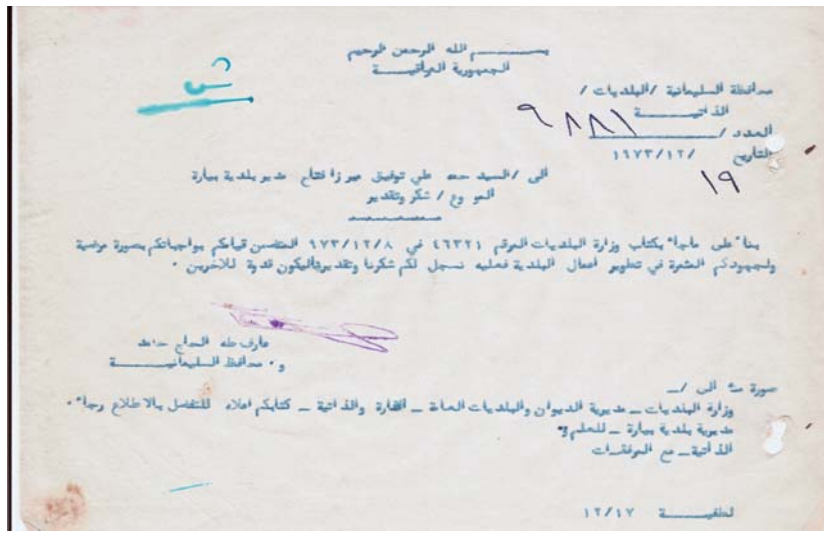 بســـــم الله الرحمن الرحيم
الجمهورية العراقيـــة
محافظة السليمانية /البلديات /
الذاتيـــــة
العدد / ٩٨٨١
التاريخ / ١٩٧٣/١٢/
١٩
الى /السيد حمه علي توفيق ميرزا فتاح مدير بلدية بيارة
المو وع / شكر وتقدير
بنا ء على ماجاء بكتاب وزارة البلديات المرقم ٤٦٣٢١ في ٩٧٣/١٢/٨ المتضمن قيامكم بواجباتكم بصورة مرضية
ولجهودكم المثمرة في تطوير اعمال البلدية فعليه نسجل لكم شكرنا وتقديرنا ليكون قدوة للاخرين ٠
عارف طه الحاج
و٠ محافظ السليمانيـــــة
صورة منه الى /ـ
وزارة البلديات ــ مديرية الديوان والبلديات العامة ــ والذاتية ــ كتابكم اعلاه للتفضل بالاطلاع رجاء ٠
مديرية بلدية بيارة ــ للعلم
الذاتية ــ مع المرفقات
لطفيـــــة ١٢/١٧